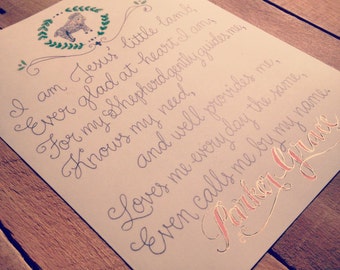 I am Jesus little lamb,
Ever glad at heart I am,
For my Shepherd gently guides me,
Knows my need,
and well provides me,
Loves me every day the same,
Even calls me by my name.
Parker Grace